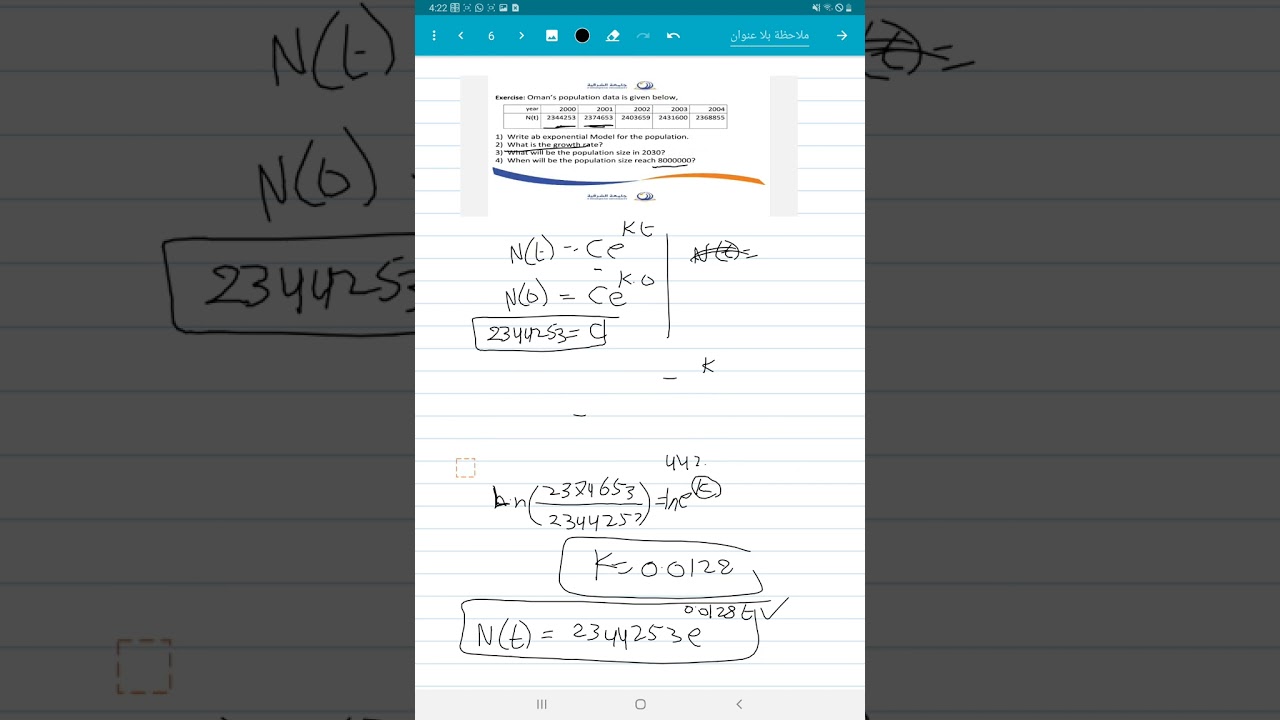 4:22
6
ملاحظة بلا عنوان
جامعة الشرقية
Exercise: Oman's population data is given below,
year 2000 2001 2002 2003 2004
N(t) 2344253 2374653 2403659 2431600 2368855
1) Write ab exponential Model for the population.
2) What is the growth rate?
3) What will be the population size in 2030?
4) When will be the population size reach 8000000?
جامعة الشرقية
N(t) = Ce^Kt
N(t)=
N(0) = Ce^K.0
2344253 = C
- K
-
442.
ln(2374653/2344253) = lne^(K)
K = 0.0128
N(t) = 2344253e^0.0128t
N(t)
N(0)
234425
(t)=